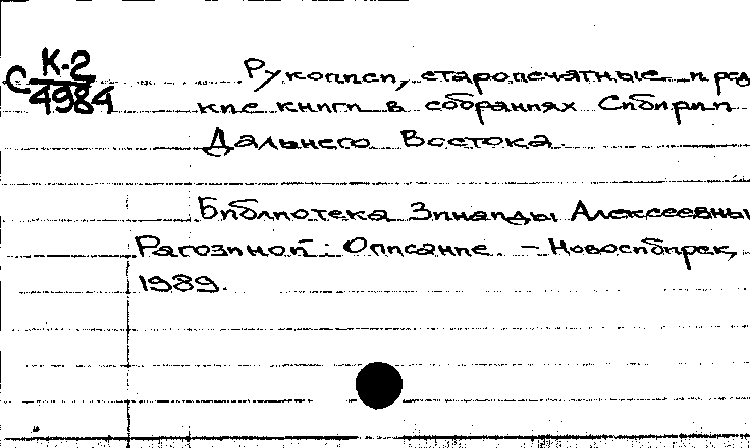 С К-2
4984
Рукописи, старопечатные и ред
кие книги в собраниях Сибири и
Дальнего Востока.
Библиотека Зинаиды Алексеевны
Рагозиной: Описание. – Новосибирск,
1989.